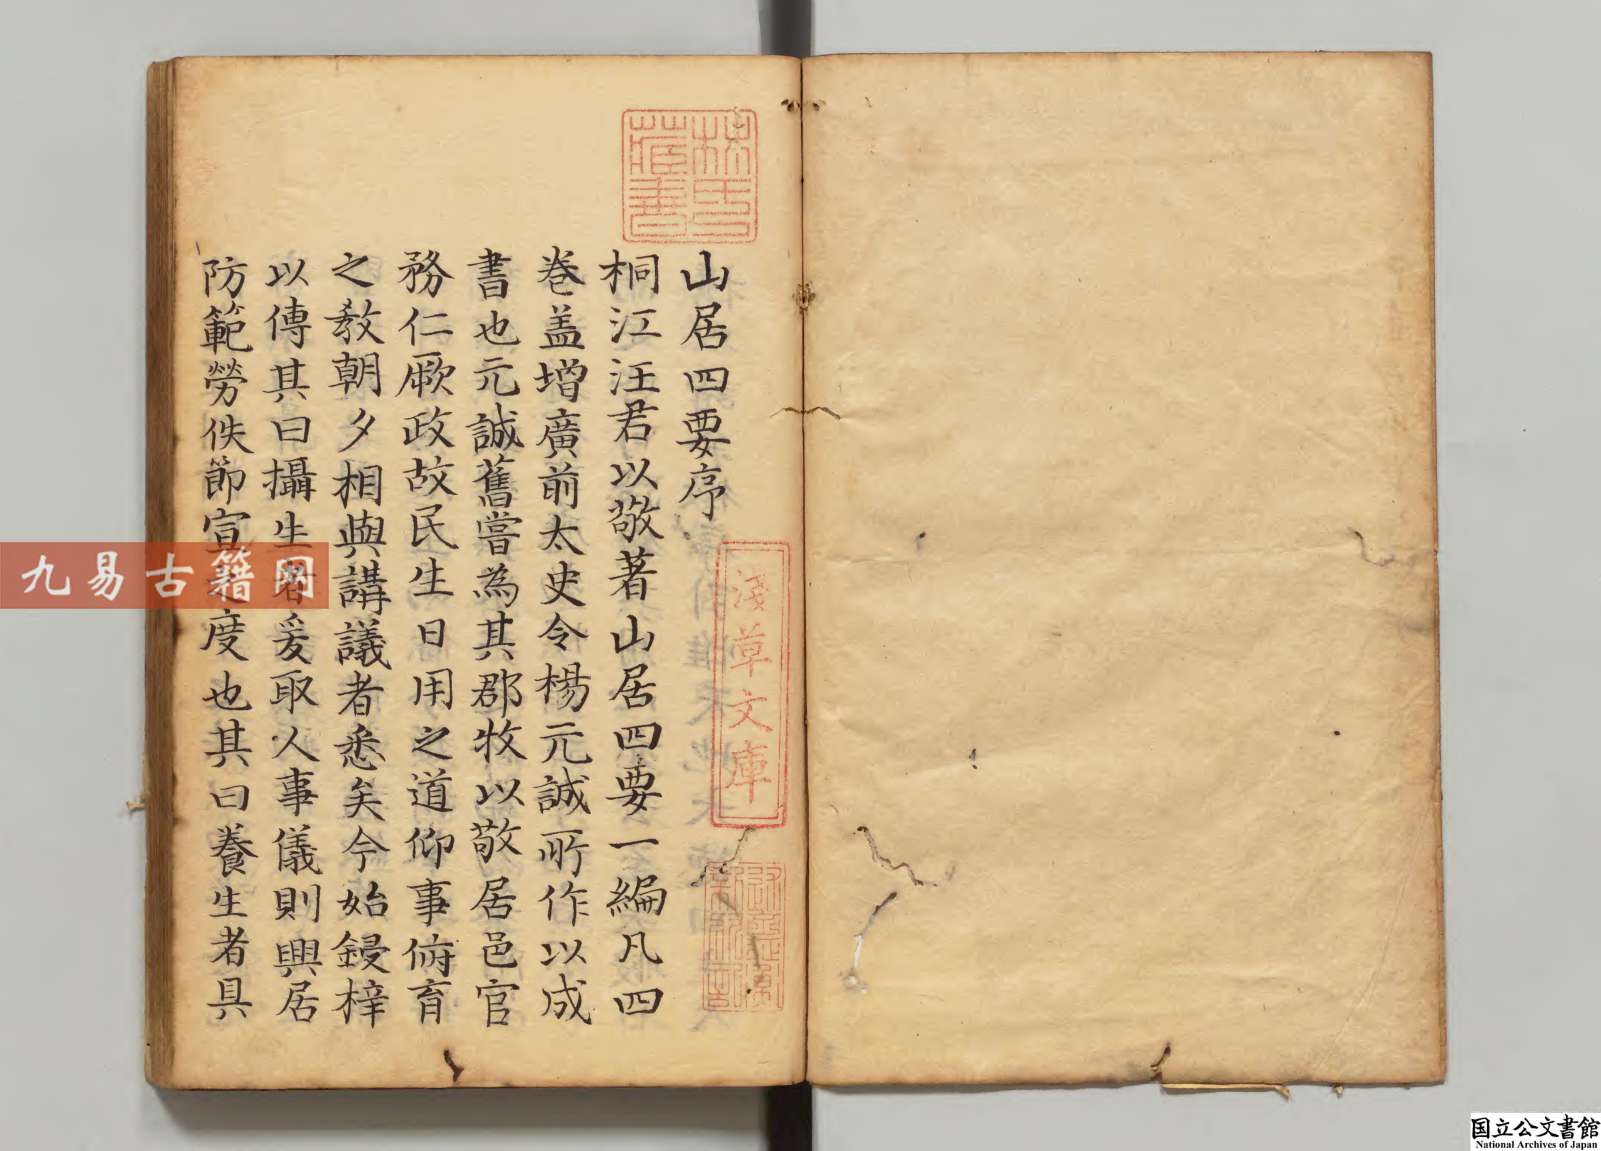 山居四要序
桐江汪君以敬著山居四要一編凡四
巻盖增廣前太史令楊元誠所作以成
書也元誠舊嘗為其郡牧以敬居邑官
務仁厥政故民生日用之道仰事俯育
之教朝夕相與講議者悉矣今始鋟梓
以傳其曰攝生者爰取人事儀則興居
防範勞佚節宣之度也其曰養生者具
林氏
藏書
淺草文庫
九易古籍网
国立公文書館
National Archives of Japan